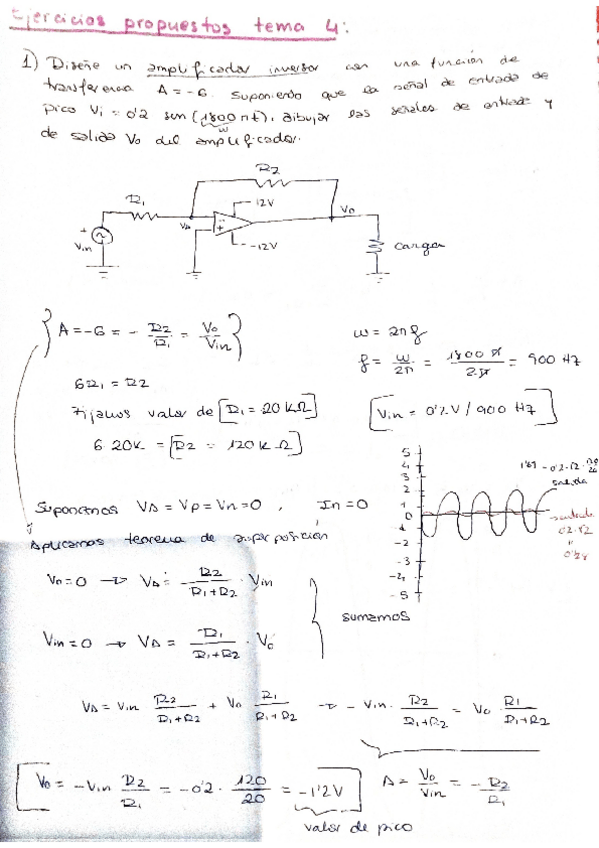 Ejercicios propuestos tema 4:
1) Diseñe un amplificador inversor con una función de
transferencia A = -6. Suponiendo que la señal de entrada de
pico Vi = 0'2 sen(1800πt), dibujar las señales de entrada y
w
de salida Vo del amplificador.
R2
R1
12V
VA
-
+
-12V
Vo
+
Vin
carga
A = -6 = - R2/R1 = Vo/Vin
w = 2πf
f = w/2π = 1800π/2π = 900 Hz
6R1 = R2
Fijamos valor de [R1 = 20KΩ]
[Vin = 0'2V / 900 Hz]
6·20K = [R2 = 120KΩ]
5
4
3
2
1
0
-1
-2
-3
-4
-5
salida
entrada
0'2·√2
0'28
Suponemos VA = Vp = Vn = 0 , In = 0
Aplicamos teorema de superposición
Vo = 0 → VA = - R2/R1+R2 · Vin
Vin = 0 → VA = -R1/R1+R2 · Vo
sumamos
VA = Vin R2/R1+R2 + Vo R1/R1+R2 → - Vin · R2/R1+R2 = Vo · R1/R1+R2
[Vo = -Vin R2/R1 = -0'2 · 120/20 = -1'2V]
A = Vo/Vin = - R2/R1
valor de pico